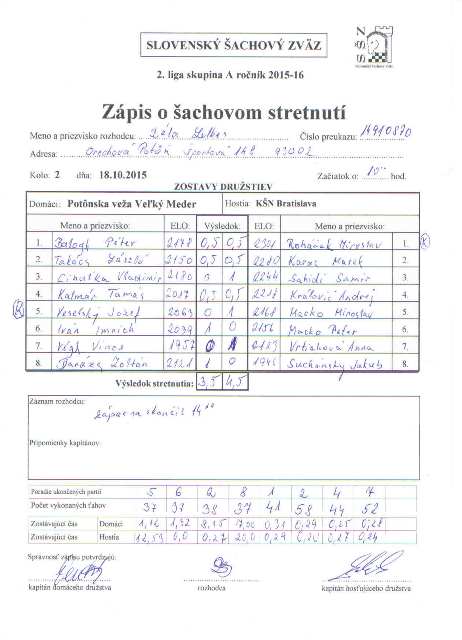 SLOVENSKÝ ŠACHOVÝ ZVÄZ
2. liga skupina A ročník 2015-16
Zápis o šachovom stretnutí
Meno a priezvisko rozhodcu: Béla Číslo preukazu: 14910870
Adresa: Orechová Potôň Športová 148 93002
Kolo: 2 dňa: 18.10.2015 Začiatok o: 10 hod.
ZOSTAVY DRUŽSTIEV
Domáci: Potônska veža Veľký Meder Hostia: KŠN Bratislava
Meno a priezvisko: ELO: Výsledok: ELO: Meno a priezvisko:
1. Balogh Péter 2178 0,5 0,5 2301 Roháček Miroslav 1. K
2. Takács László 2150 0,5 0,5 2280 Karas Marek 2.
3. Cibulka Vladimír 2180 0 1 2244 Sahidi Samir 3.
4. Kalmár Tamás 2017 0,5 0,5 2218 Královič Andrej 4.
K 5. Veselský Jozef 2063 0 1 2161 Macko Miroslav 5.
6. Iván Imrich 2039 1 0 2156 Macko Peter 6.
7. Végh Vince 1957 0 1 2123 Vrtiaková Anna 7.
8. Daráza Zoltán 2121 1 0 1946 Suchánsky Jakub 8.
Výsledok stretnutia: 3,5 4,5
Záznam rozhodcu:
zápas sa skončil 14
Pripomienky kapitánov:
Poradie ukončených partií 5 6 2 8 1 2 4 7
Počet vykonaných ťahov 37 37 38 37 41 58 44 52
Zostávajúci čas Domáci 0,31 0,29 0,25 0,28
Zostávajúci čas Hostia 12,59 0,27 20,0 0,29 0,20 0,27 0,24
Správnosť zápisu potvrdzujú:
kapitán domáceho družstva rozhodca kapitán hosťujúceho družstva